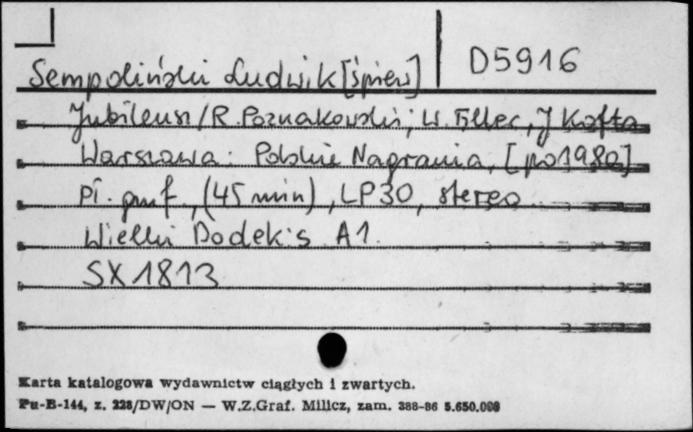 Sempoliński Ludwik [śpiew]
D5916
Jubileusz / R. Poznakowski; W. Filler, J Kofta
Warszawa: Polskie Nagrania, [po 1980]
Pł. gmf., (45 min), LP30, stereo
Wielki Dodek: s A1.
SX 1813
Karta katalogowa wydawnictw ciągłych i zwartych.
Pu-B-144, z. 228/DW/ON — W.Z.Graf. Milicz, zam. 388-86 5.650.000